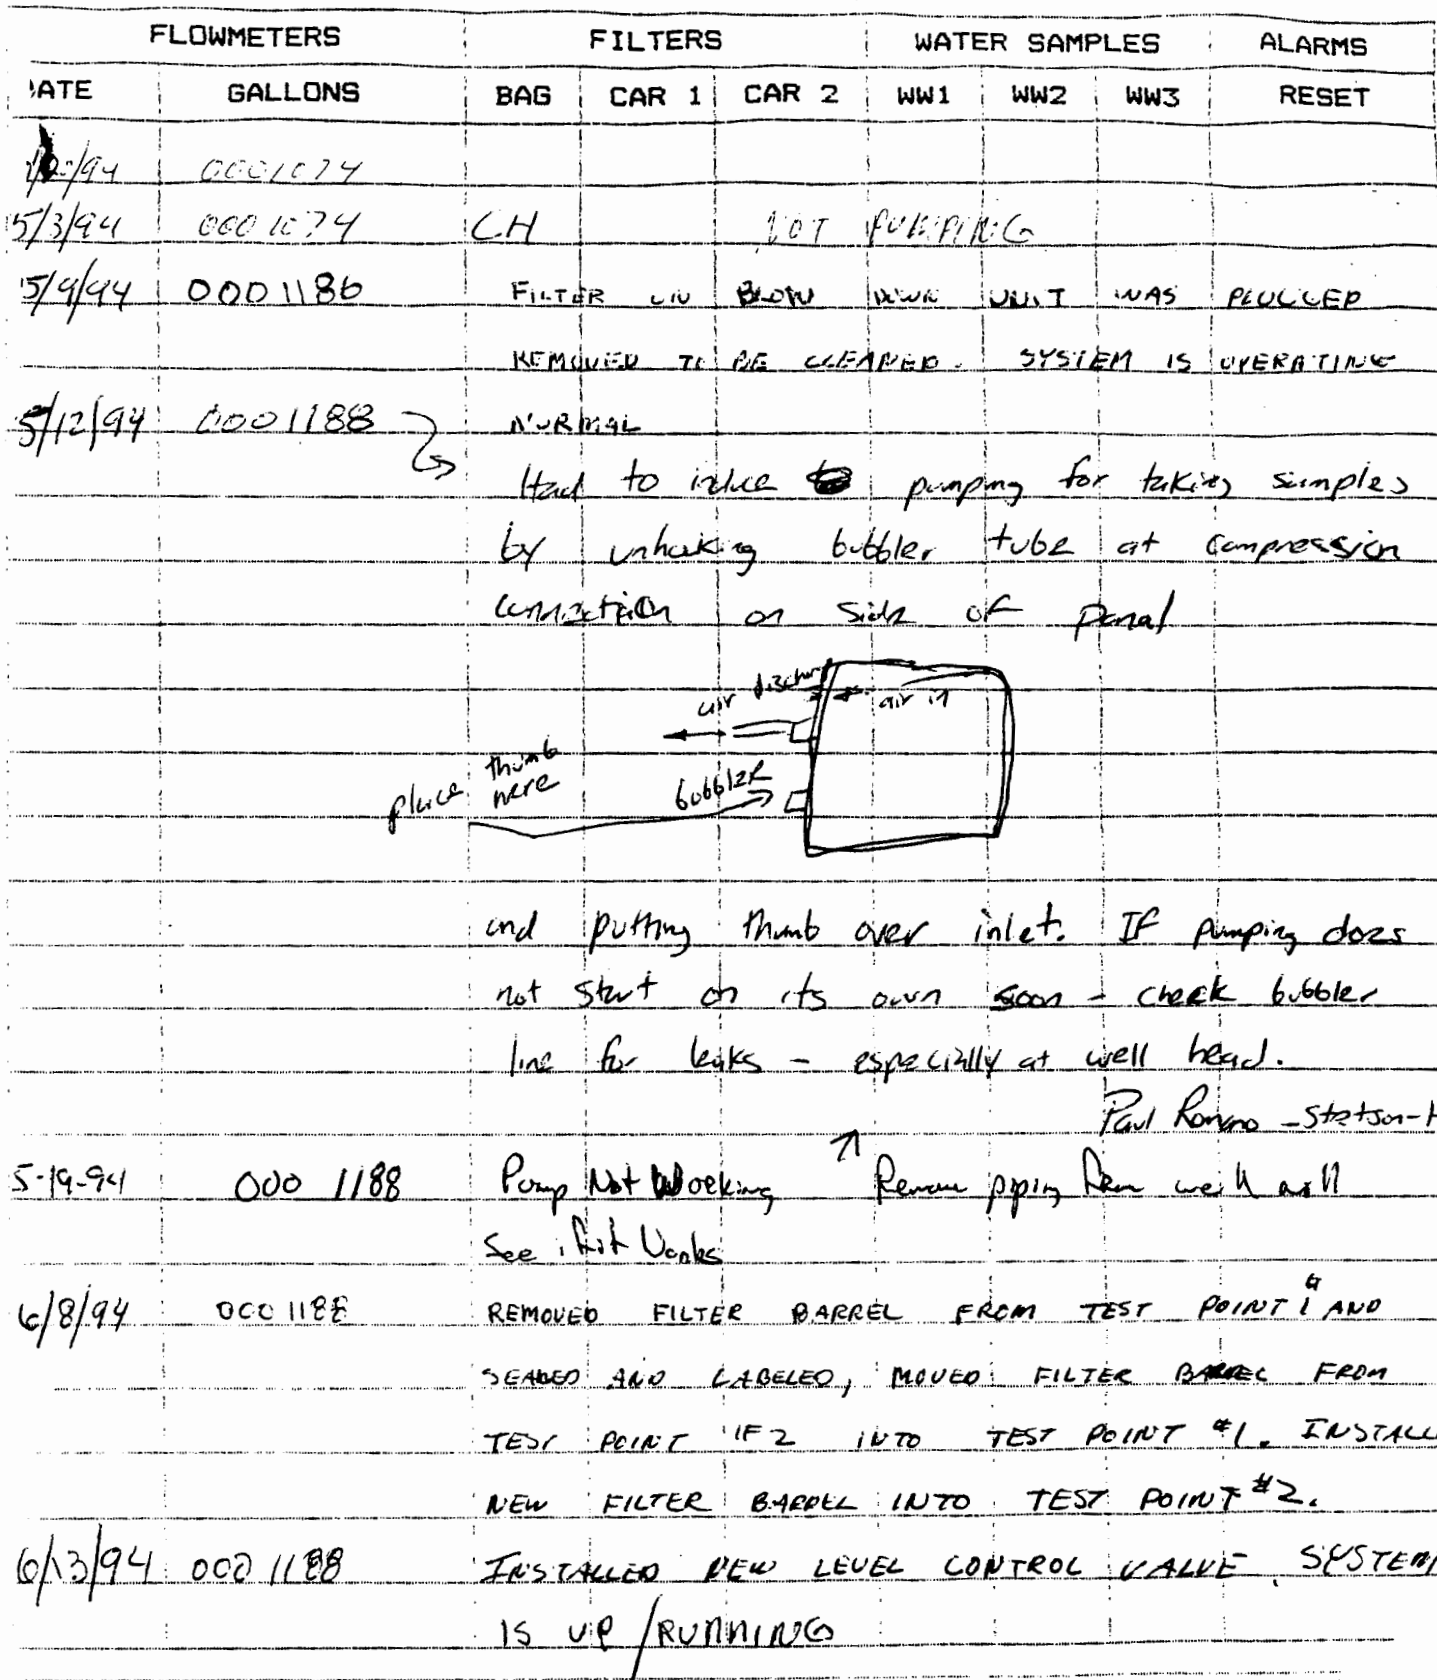 FLOWMETERS FILTERS WATER SAMPLES ALARMS
ATE GALLONS BAG CAR 1 CAR 2 WW1 WW2 WW3 RESET
/94 0001074
5/3/94 0001074 CH NOT PUMPING
5/9/94 0001186 FILTER ON BLOW DOWN UNIT WAS PLUGGED
REMOVED TO BE CLEANED. SYSTEM IS OPERATING
5/12/94 0001188 NORMAL
Had to induce pumping for taking samples
by unhooking bubbler tube at compression
connection on side of panal
air dischar air in
place thumb here bubbler
and putting thumb over inlet. If pumping does
not start on its own soon - check bubbler
line for leaks - especially at well head.
Paul Romano - Stetson-H
5-19-94 000 1188 Pump Not Working Remove piping from well
See if it Works
6/8/94 0001188 REMOVED FILTER BARREL FROM TEST POINT #1 AND
SEALED AND LABELED, MOVED FILTER BARREL FROM
TEST POINT #2 INTO TEST POINT #1. INSTALL
NEW FILTER BARREL INTO TEST POINT #2.
6/13/94 000 1188 INSTALLED NEW LEVEL CONTROL VALVE. SYSTEM
IS UP/RUNNING